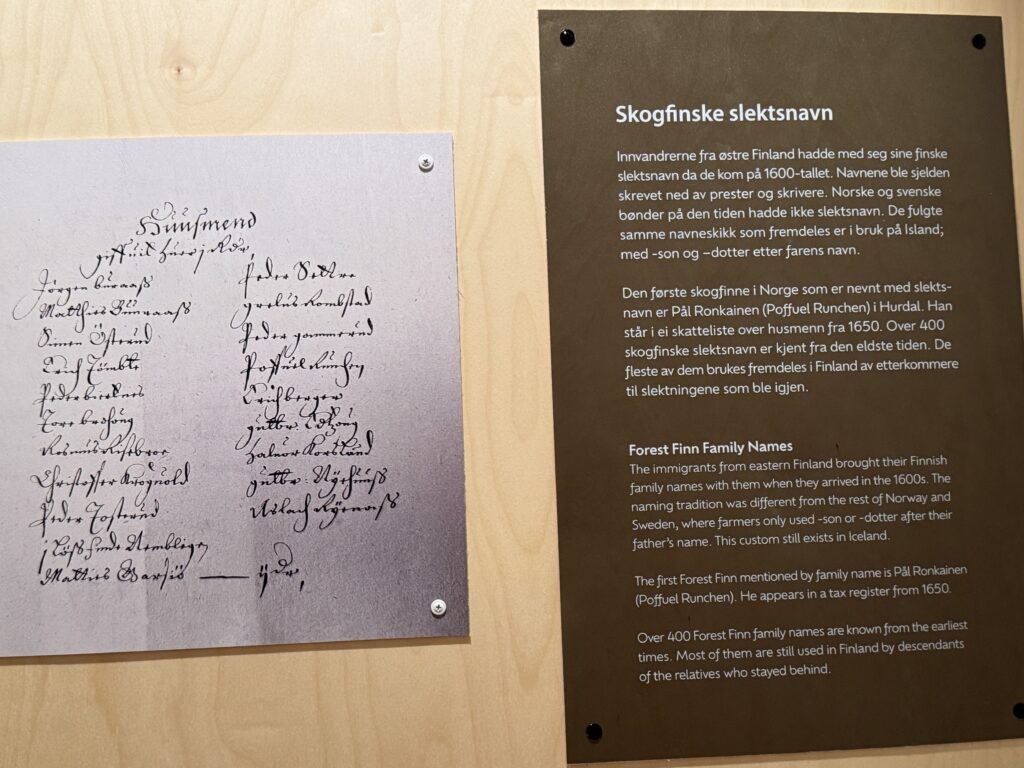 Huusmend
giffuit huerj Rdr,
Jörgen buraass
Matthies Buuraass
Simen Österud
Erich Tömbte
Peder birknes
Tore brohöug
Rasmus Risebroe
Christoffer Kroguold
Peder Josterud
Matties Garsiö
Peder Settre
grelus Rombstad
Peder gammerud
Poffuil Runchen
Erich berger
guttbr:
Haluor Korsland
guttbr: Nÿehuuss
Aslach Rÿenaass
Skogfinske slektsnavn
Innvandrerne fra østre Finland hadde med seg sine finske
slektsnavn da de kom på 1600-tallet. Navnene ble sjelden
skrevet ned av prester og skrivere. Norske og svenske
bønder på den tiden hadde ikke slektsnavn. De fulgte
samme navneskikk som fremdeles er i bruk på Island;
med -son og –dotter etter farens navn.
Den første skogfinne i Norge som er nevnt med slekts-
navn er Pål Ronkainen (Poffuel Runchen) i Hurdal. Han
står i ei skatteliste over husmenn fra 1650. Over 400
skogfinske slektsnavn er kjent fra den eldste tiden. De
fleste av dem brukes fremdeles i Finland av etterkommere
til slektningene som ble igjen.
Forest Finn Family Names
The immigrants from eastern Finland brought their Finnish
family names with them when they arrived in the 1600s. The
naming tradition was different from the rest of Norway and
Sweden, where farmers only used -son or -dotter after their
father's name. This custom still exists in Iceland.
The first Forest Finn mentioned by family name is Pål Ronkainen
(Poffuel Runchen). He appears in a tax register from 1650.
Over 400 Forest Finn family names are known from the earliest
times. Most of them are still used in Finland by descendants
of the relatives who stayed behind.